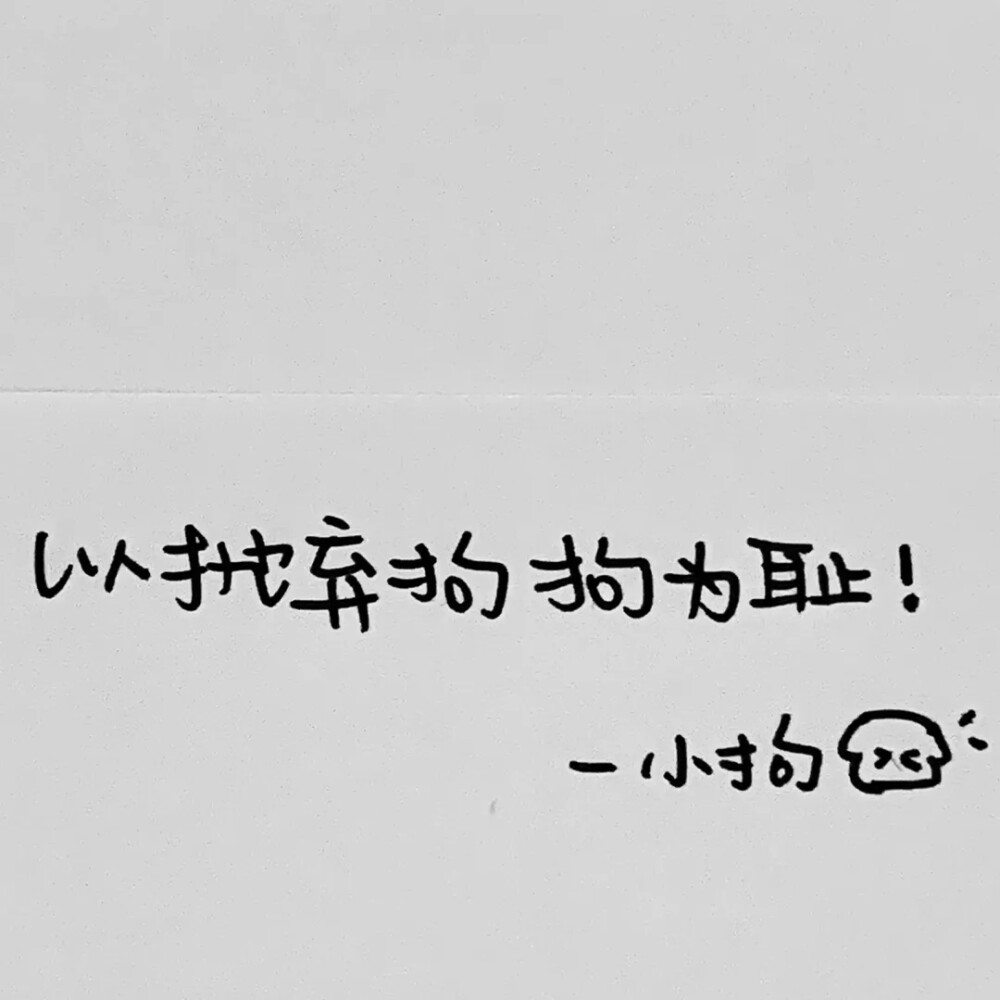 以抛弃狗狗为耻！
—小狗